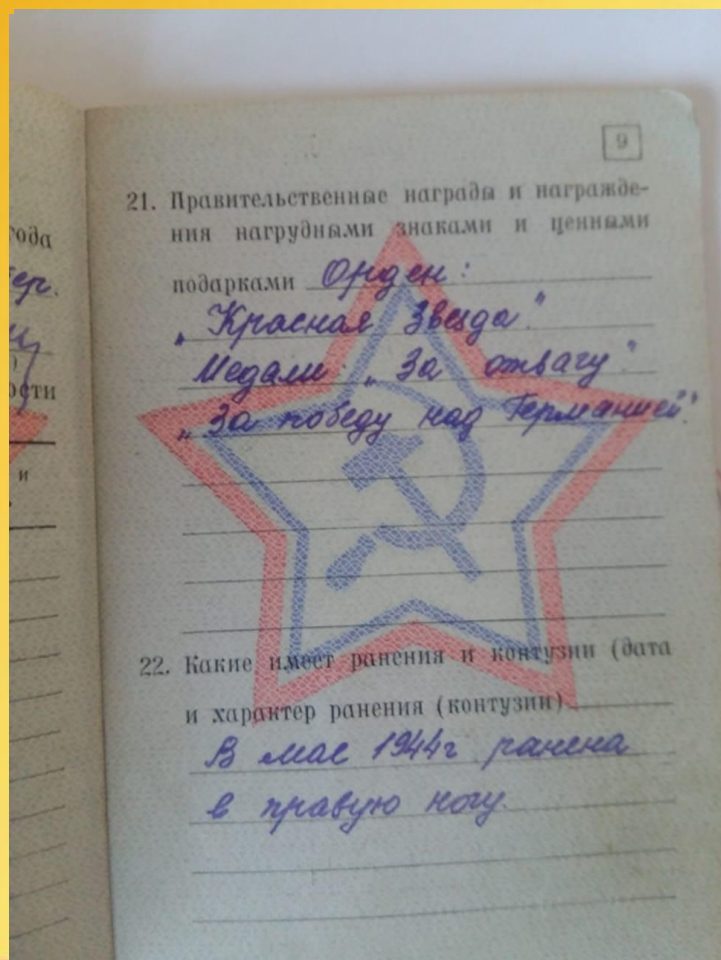 9
21. Правительственные награды и награжде-
ния нагрудными знаками и ценными
подарками Орден:
„Красная Звезда".
Медали: „За отвагу"
„За победу над Германией".
22. Какие имеет ранения и контузии (дата
и характер ранения (контузии)
В мае 1944г ранена
в правую ногу.
года
ости
и